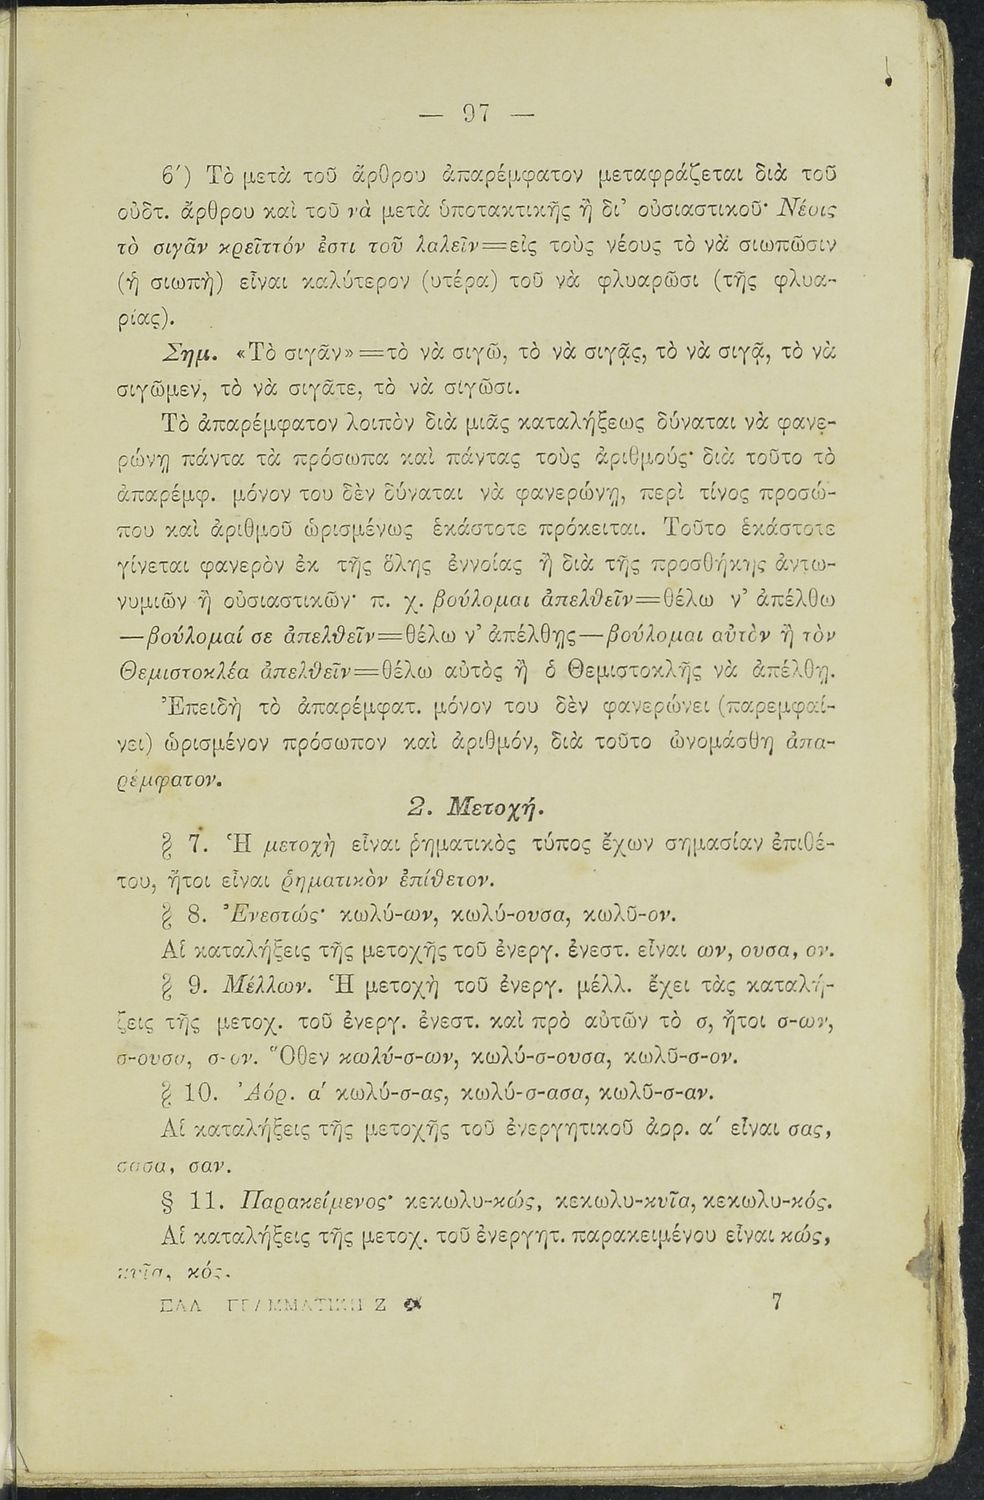 — 97 —
ϐ΄) Τὸ μετὰ τοῦ ἄρθρου ἀπαρέμφατον μεταφράζεται διὰ τοῦ
οὐδτ. ἄρθρου καὶ τοῦ νὰ μετὰ ὑποτακτικῆς ἢ δι’ οὐσιαστικοῦ· Νέοις
τὸ σιγᾶν κρεῖττόν ἐστι τοῦ λαλεῖν=εἰς τοὺς νέους τὸ νὰ σιωπῶσιν
(ἡ σιωπὴ) εἶναι καλύτερον (υτέρα) τοῦ νὰ φλυαρῶσι (τῆς φλυα-
ρίας).
Σημ. «Τὸ σιγᾶν»=τὸ νὰ σιγῶ, τὸ νὰ σιγᾷς, τὸ νὰ σιγᾷ, τὸ νὰ
σιγῶμεν, τὸ νὰ σιγᾶτε, τὸ νὰ σιγῶσι.
Τὸ ἀπαρέμφατον λοιπὸν διὰ μιᾶς καταλήξεως δύναται νὰ φανε-
ρώνῃ πάντα τὰ πρόσωπα καὶ πάντας τοὺς ἀριθμούς· διὰ τοῦτο τὸ
ἀπαρέμφ. μόνον του δὲν δύναται νὰ φανερώνῃ, περὶ τίνος προσώ-
που καὶ ἀριθμοῦ ὡρισμένως ἑκάστοτε πρόκειται. Τοῦτο ἑκάστοτε
γίνεται φανερὸν ἐκ τῆς ὅλης ἐννοίας ἢ διὰ τῆς προσθήκης ἀντω-
νυμιῶν ἢ οὐσιαστικῶν· π. χ. βούλομαι ἀπελθεῖν=θέλω ν’ ἀπέλθω
—βούλομαί σε ἀπελθεῖν=θέλω ν’ ἀπέλθῃς—βούλομαι αὐτὸν ἢ τὸν
Θεμιστοκλέα ἀπελθεῖν=θέλω αὐτὸς ἢ ὁ Θεμιστοκλῆς νὰ ἀπέλθῃ.
Ἐπειδὴ τὸ ἀπαρέμφατ. μόνον του δὲν φανερώνει (παρεμφαί-
νει) ὡρισμένον πρόσωπον καὶ ἀριθμόν, διὰ τοῦτο ὠνομάσθη ἀπα-
ρέμφατον.
2. Μετοχή.
§ 7. Ἡ μετοχὴ εἶναι ῥηματικὸς τύπος ἔχων σημασίαν ἐπιθέ-
του, ἤτοι εἶναι ῥηματικὸν ἐπίθετον.
§ 8. Ἐνεστώς· κωλύ-ων, κωλύ-ουσα, κωλῦ-ον.
Αἱ καταλήξεις τῆς μετοχῆς τοῦ ἐνεργ. ἐνεστ. εἶναι ων, ουσα, ον.
§ 9. Μέλλων. Ἡ μετοχὴ τοῦ ἐνεργ. μέλλ. ἔχει τὰς καταλή-
ξεις τῆς μετοχ. τοῦ ἐνεργ. ἐνεστ. καὶ πρὸ αὐτῶν τὸ σ, ἤτοι σ-ων,
σ-ουσα, σ-ον. Ὅθεν κωλύ-σ-ων, κωλύ-σ-ουσα, κωλῦ-σ-ον.
§ 10. Ἀόρ. α΄ κωλύ-σ-ας, κωλύ-σ-ασα, κωλῦ-σ-αν.
Αἱ καταλήξεις τῆς μετοχῆς τοῦ ἐνεργητικοῦ ἀορ. α΄ εἶναι σας,
σασα, σαν.
§ 11. Παρακείμενος· κεκωλυ-κώς, κεκωλυ-κυῖα, κεκωλυ-κός.
Αἱ καταλήξεις τῆς μετοχ. τοῦ ἐνεργητ. παρακειμένου εἶναι κώς,
κυῖα, κός.
ΕΛΛ ΓΡΑΜΜΑΤΙΚΗ Ζ 7